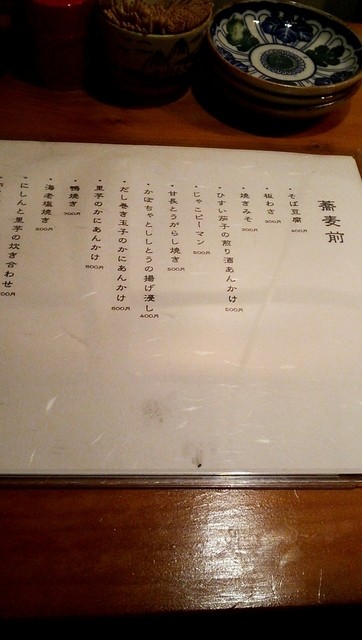 蕎麦前
・そば豆腐 400円
・板わさ 500円
・焼きみそ 500円
・ひすい茄子の煎り酒あんかけ 500円
・じゃこピーマン 500円
・甘長とうがらし焼き 500円
・かぼちゃとししとうの揚げ浸し 400円
・だし巻き玉子のかにあんかけ 800円
・里芋のかにあんかけ 800円
・鴨焼き 900円
・海老塩焼き 800円
・にしんと里芋の炊き合わせ